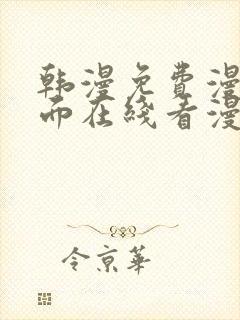 韩漫免费漫
而在线看漫
令京華